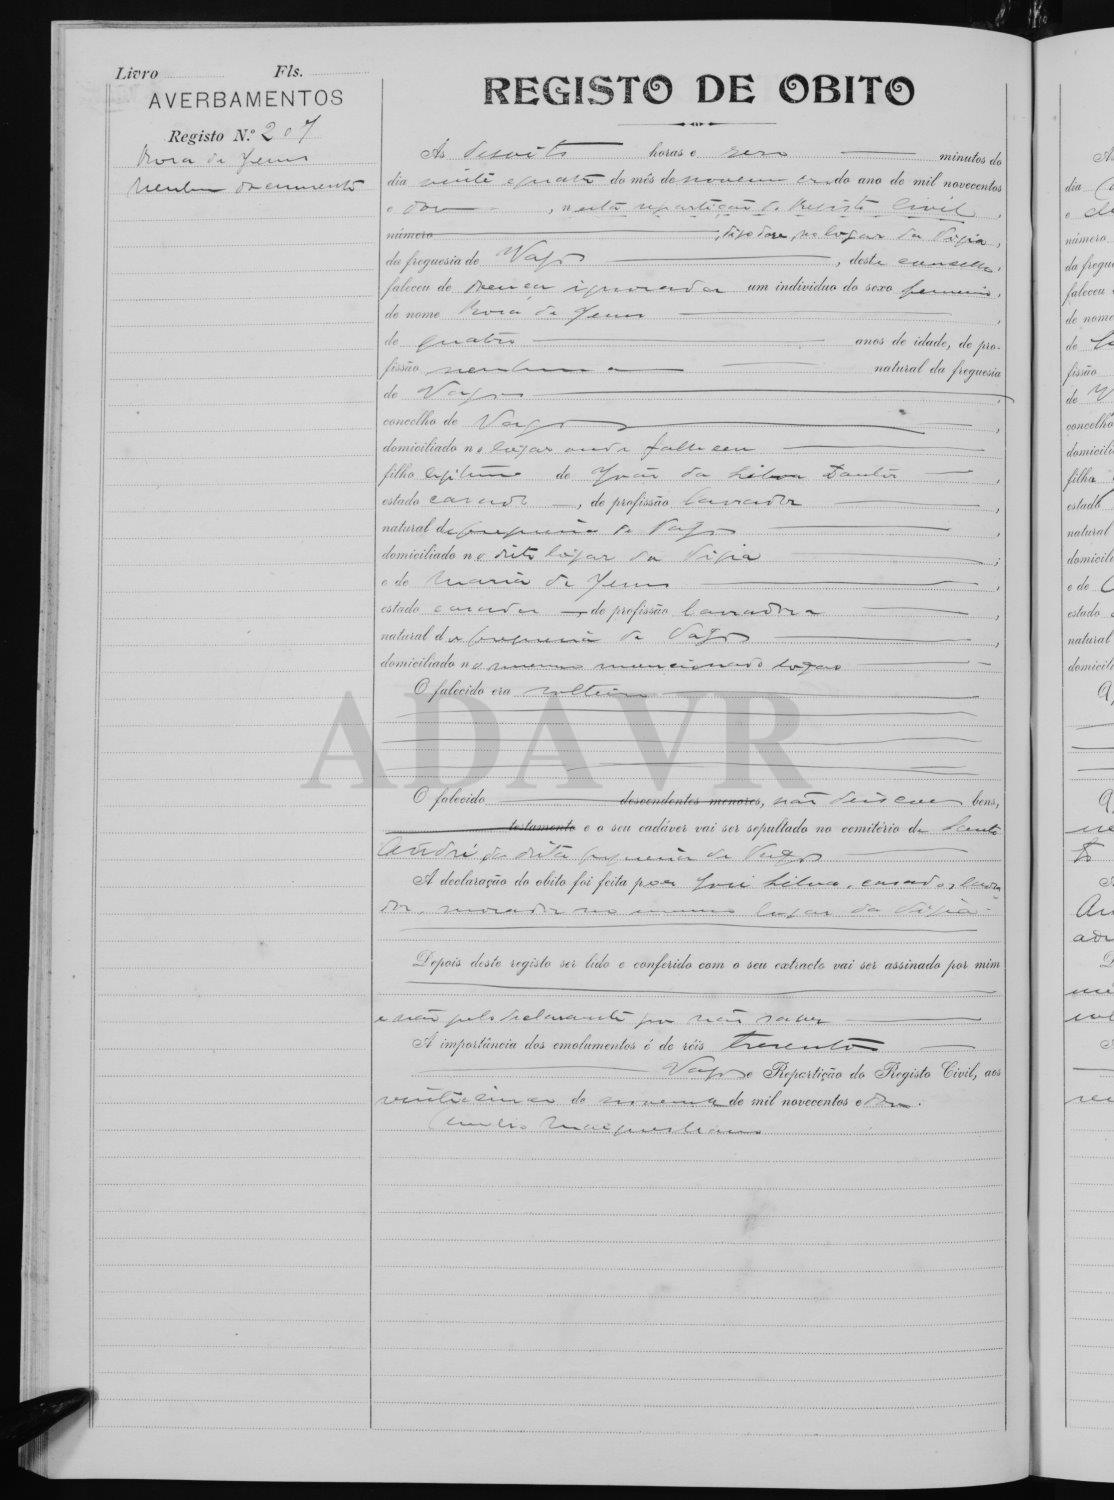 Livro Fls.
AVERBAMENTOS
Registo N.º 207
Rosa de Jesus
Nenhum documento
REGISTO DE OBITO
Ás desoito horas e zero minutos do
dia vinte e quatro do mês de novembro do ano de mil novecentos
e doze, nesta repartição do Registo Civil,
número, digo doze, no lugar da Vigia,
da freguesia de Vagos, deste concelho,
faleceu de doença ignorada um individuo do sexo femenino,
de nome Rosa de Jesus,
de quatro anos de idade, de pro-
fissão nenhuma natural da freguesia
de Vagos,
concelho de Vagos,
domiciliado no lugar onde falleceu
filho legitimo de João da Silva,
estado casado, de profissão lavrador,
natural da freguesia de Vagos,
domiciliado no dito lugar da Vigia;
e de Maria de Jesus,
estado casada, de profissão lavradora,
natural da freguesia de Vagos,
domiciliado no mesmo mencionado lugar
O falecido era solteira
ADAVR
O falecido descendentes menores, não deixou bens,
testamento e o seu cadáver vai ser sepultado no cemitério de Santo
André da dita freguesia de Vagos
A declaração do obito foi feita por José Silva, casado, lavra
dor, morador no mesmo lugar da Vigia
Depois deste registo ser lido e conferido com o seu extracto vai ser assinado por mim
e não pelo declarante por não saber
A importância dos emolumentos é de réis trezentos
Vagos e Repartição do Registo Civil, aos
vinte cinco de novembro de mil novecentos e doze.